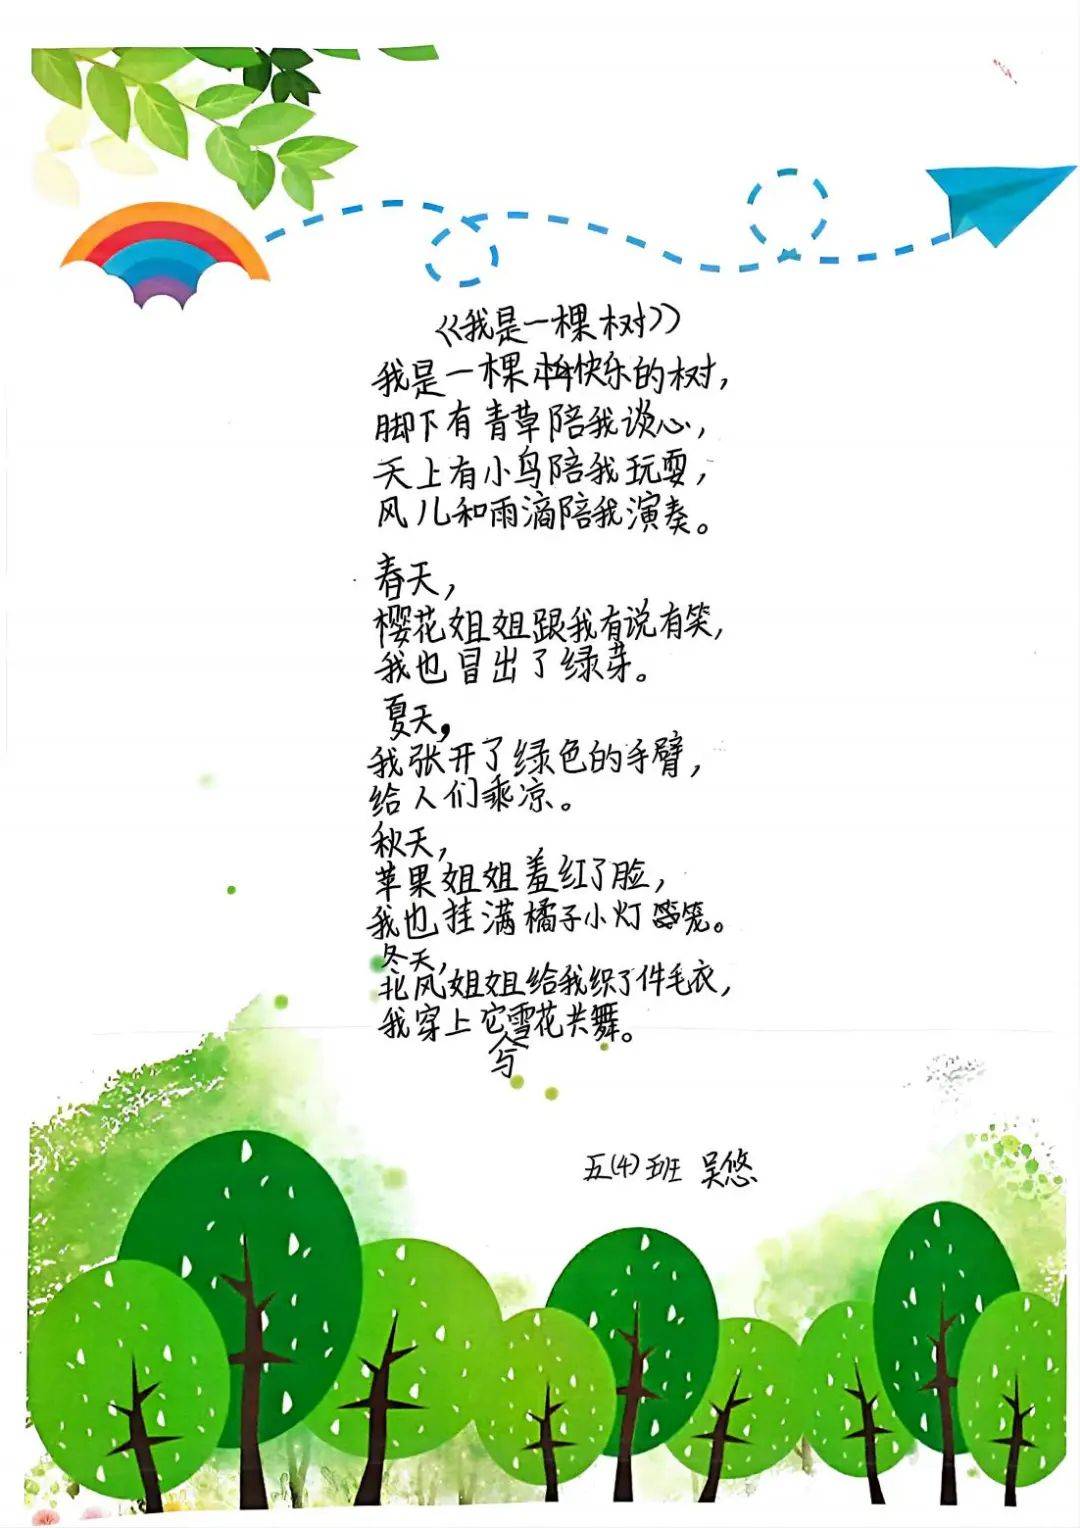 《我是一棵树》
我是一棵快乐的树，
脚下有青草陪我谈心，
天上有小鸟陪我玩耍，
风儿和雨滴陪我演奏。
春天，
樱花姐姐跟我有说有笑，
我也冒出了绿芽。
夏天，
我张开了绿色的手臂，
给人们乘凉。
秋天，
苹果姐姐羞红了脸，
我也挂满橘子小灯笼。
冬天，
北风姐姐给我织了件毛衣，
我穿上它与雪花共舞。
五(4)班 吴悠